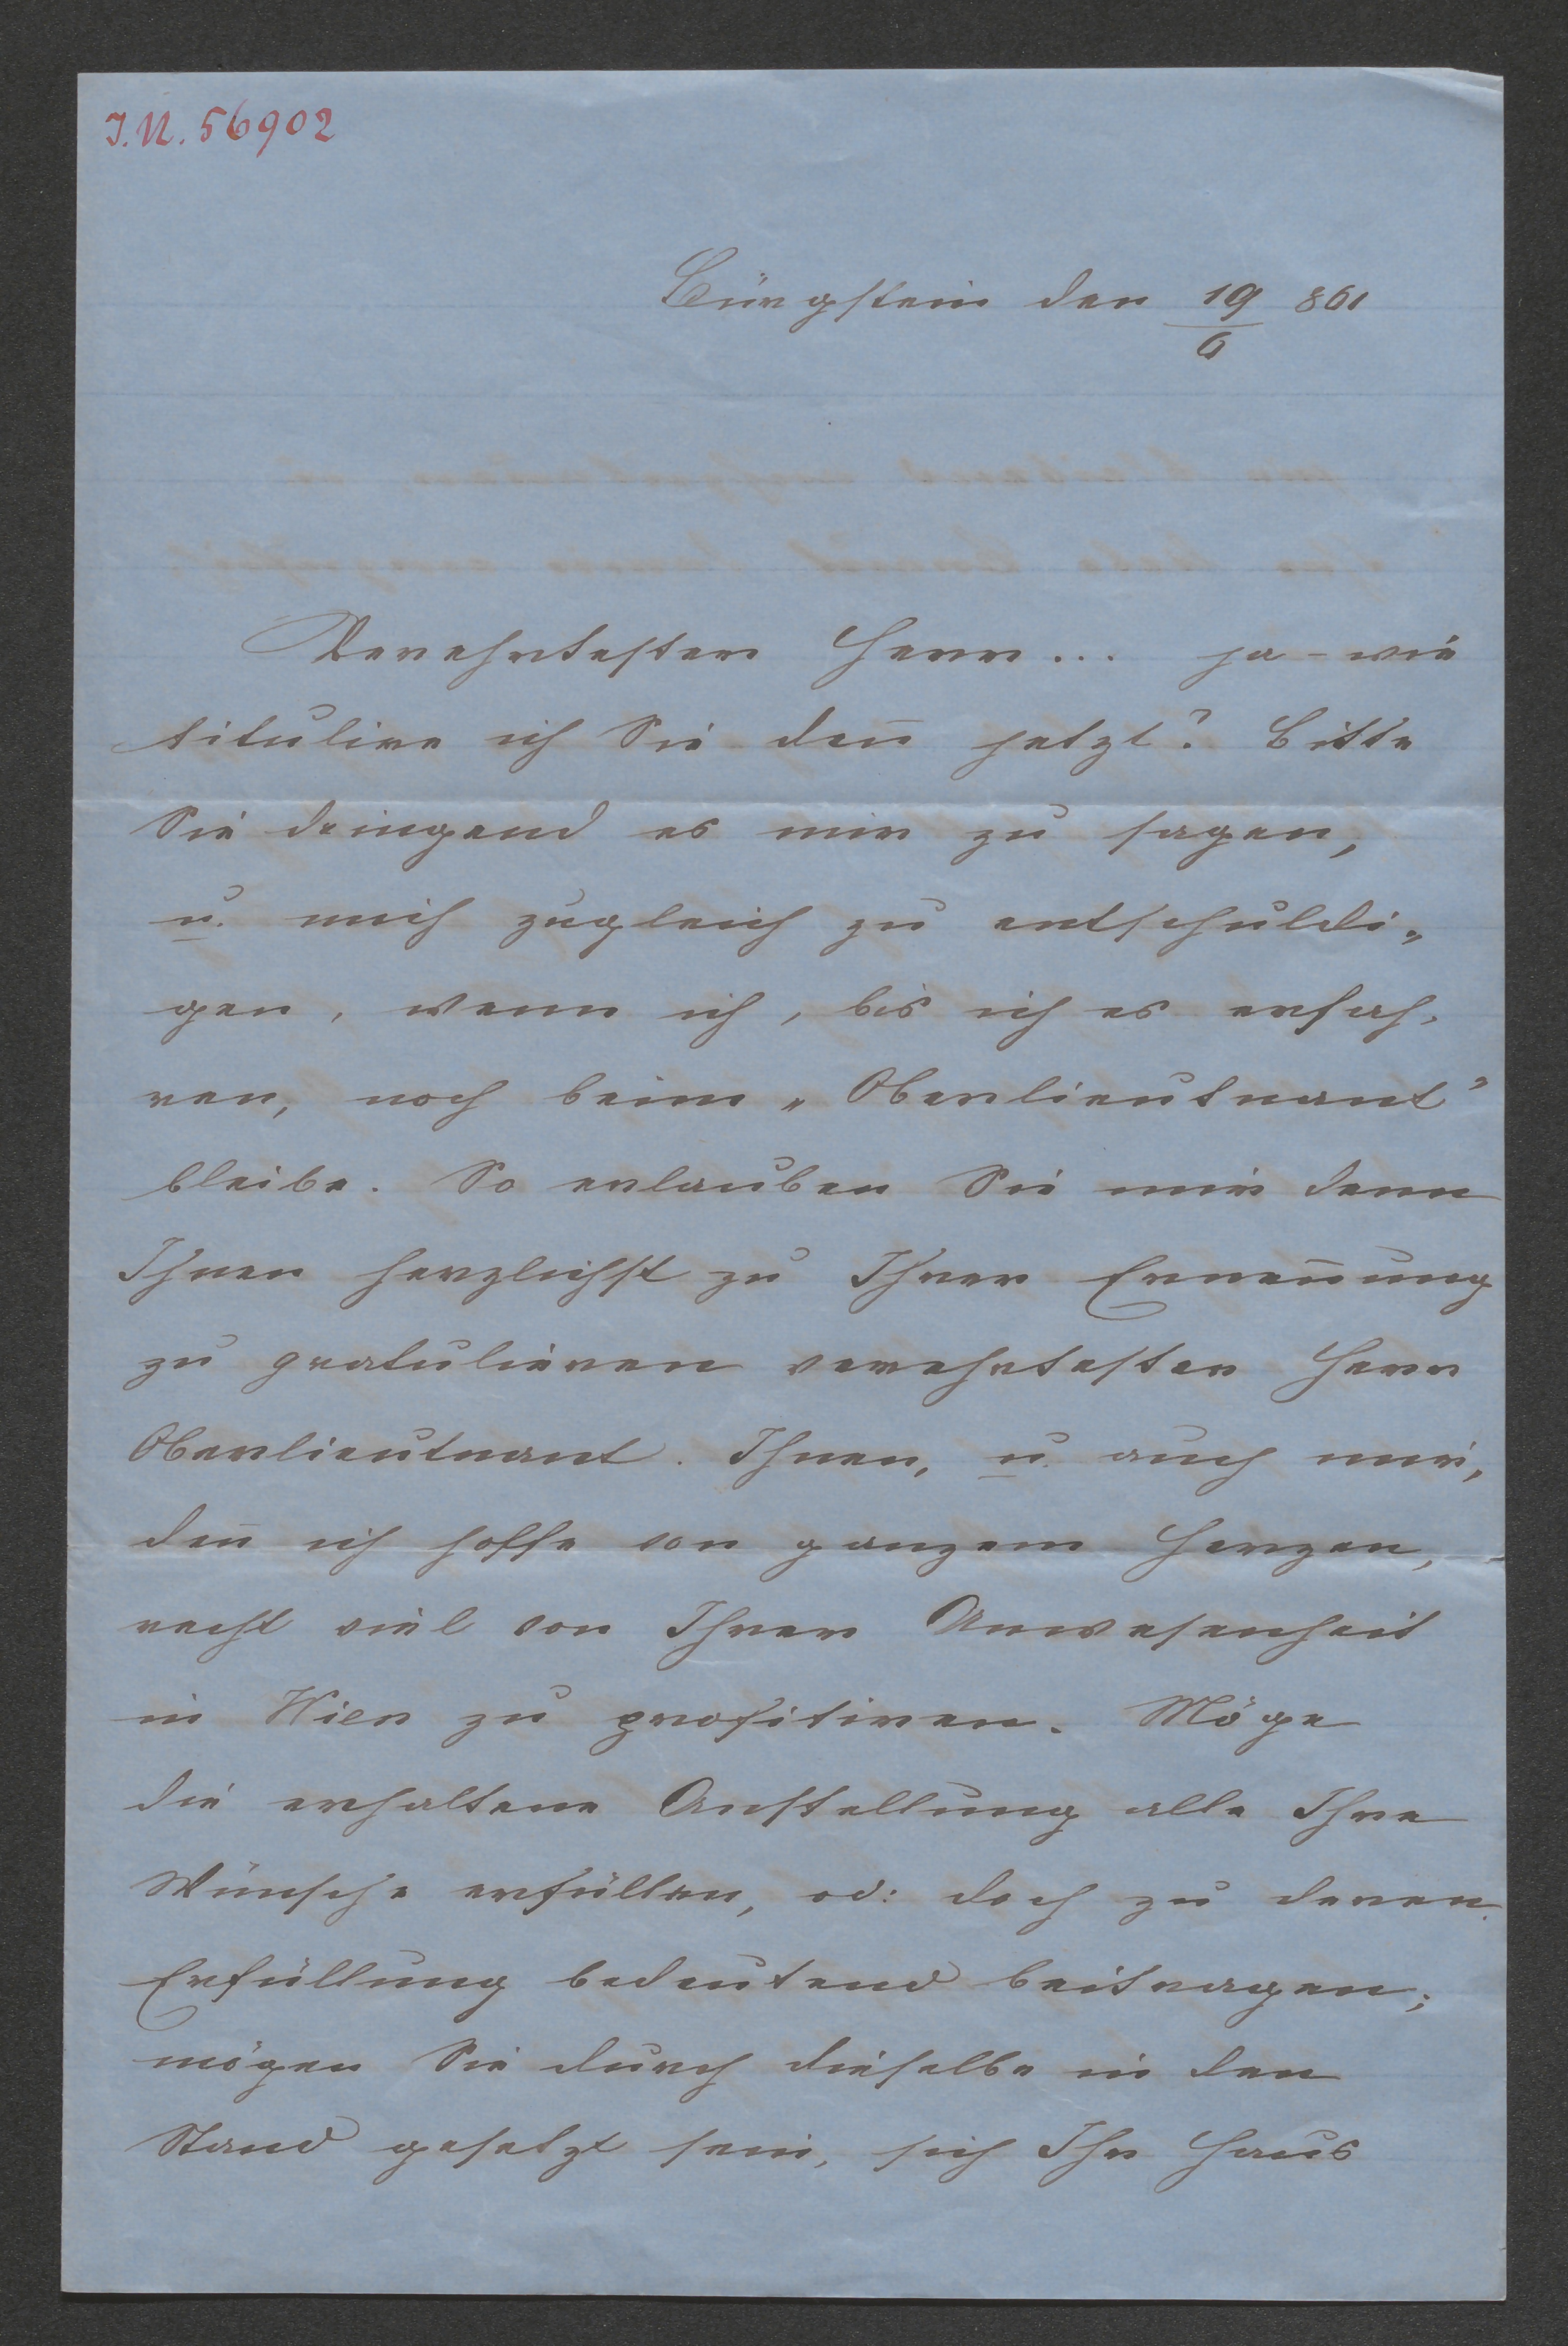 I.N. 56902
Bürgstein den 19/6 861
Verehrtester Herr... ja - wie
titulire ich Sie deñ jetzt? Bitte
Sie dringend es mir zu sagen,
u. mich zugleich zu entschuldi„
gen, wenn ich, bis ich es erfah„
ren, noch beim „Oberlieutnant”
bleibe. So erlauben Sie mir denn
Ihnen herzlichst zu Ihrer Erneñung
zu gratulieren verehrtester Herr
Oberlieutnant. Ihnen, u. auch mir,
deñ ich hoffe von ganzem Herzen,
recht viel von Ihrer Anwesenheit
in Wien zu profitiren. Möge
die erhaltene Anstellung alle Ihre
Wünsche erfüllen, od: doch zu deren
Erfüllung bedeutend beitragen;
mögen Sie durch dieselbe in den
Stand gesetzt sein, sich Ihr Haus